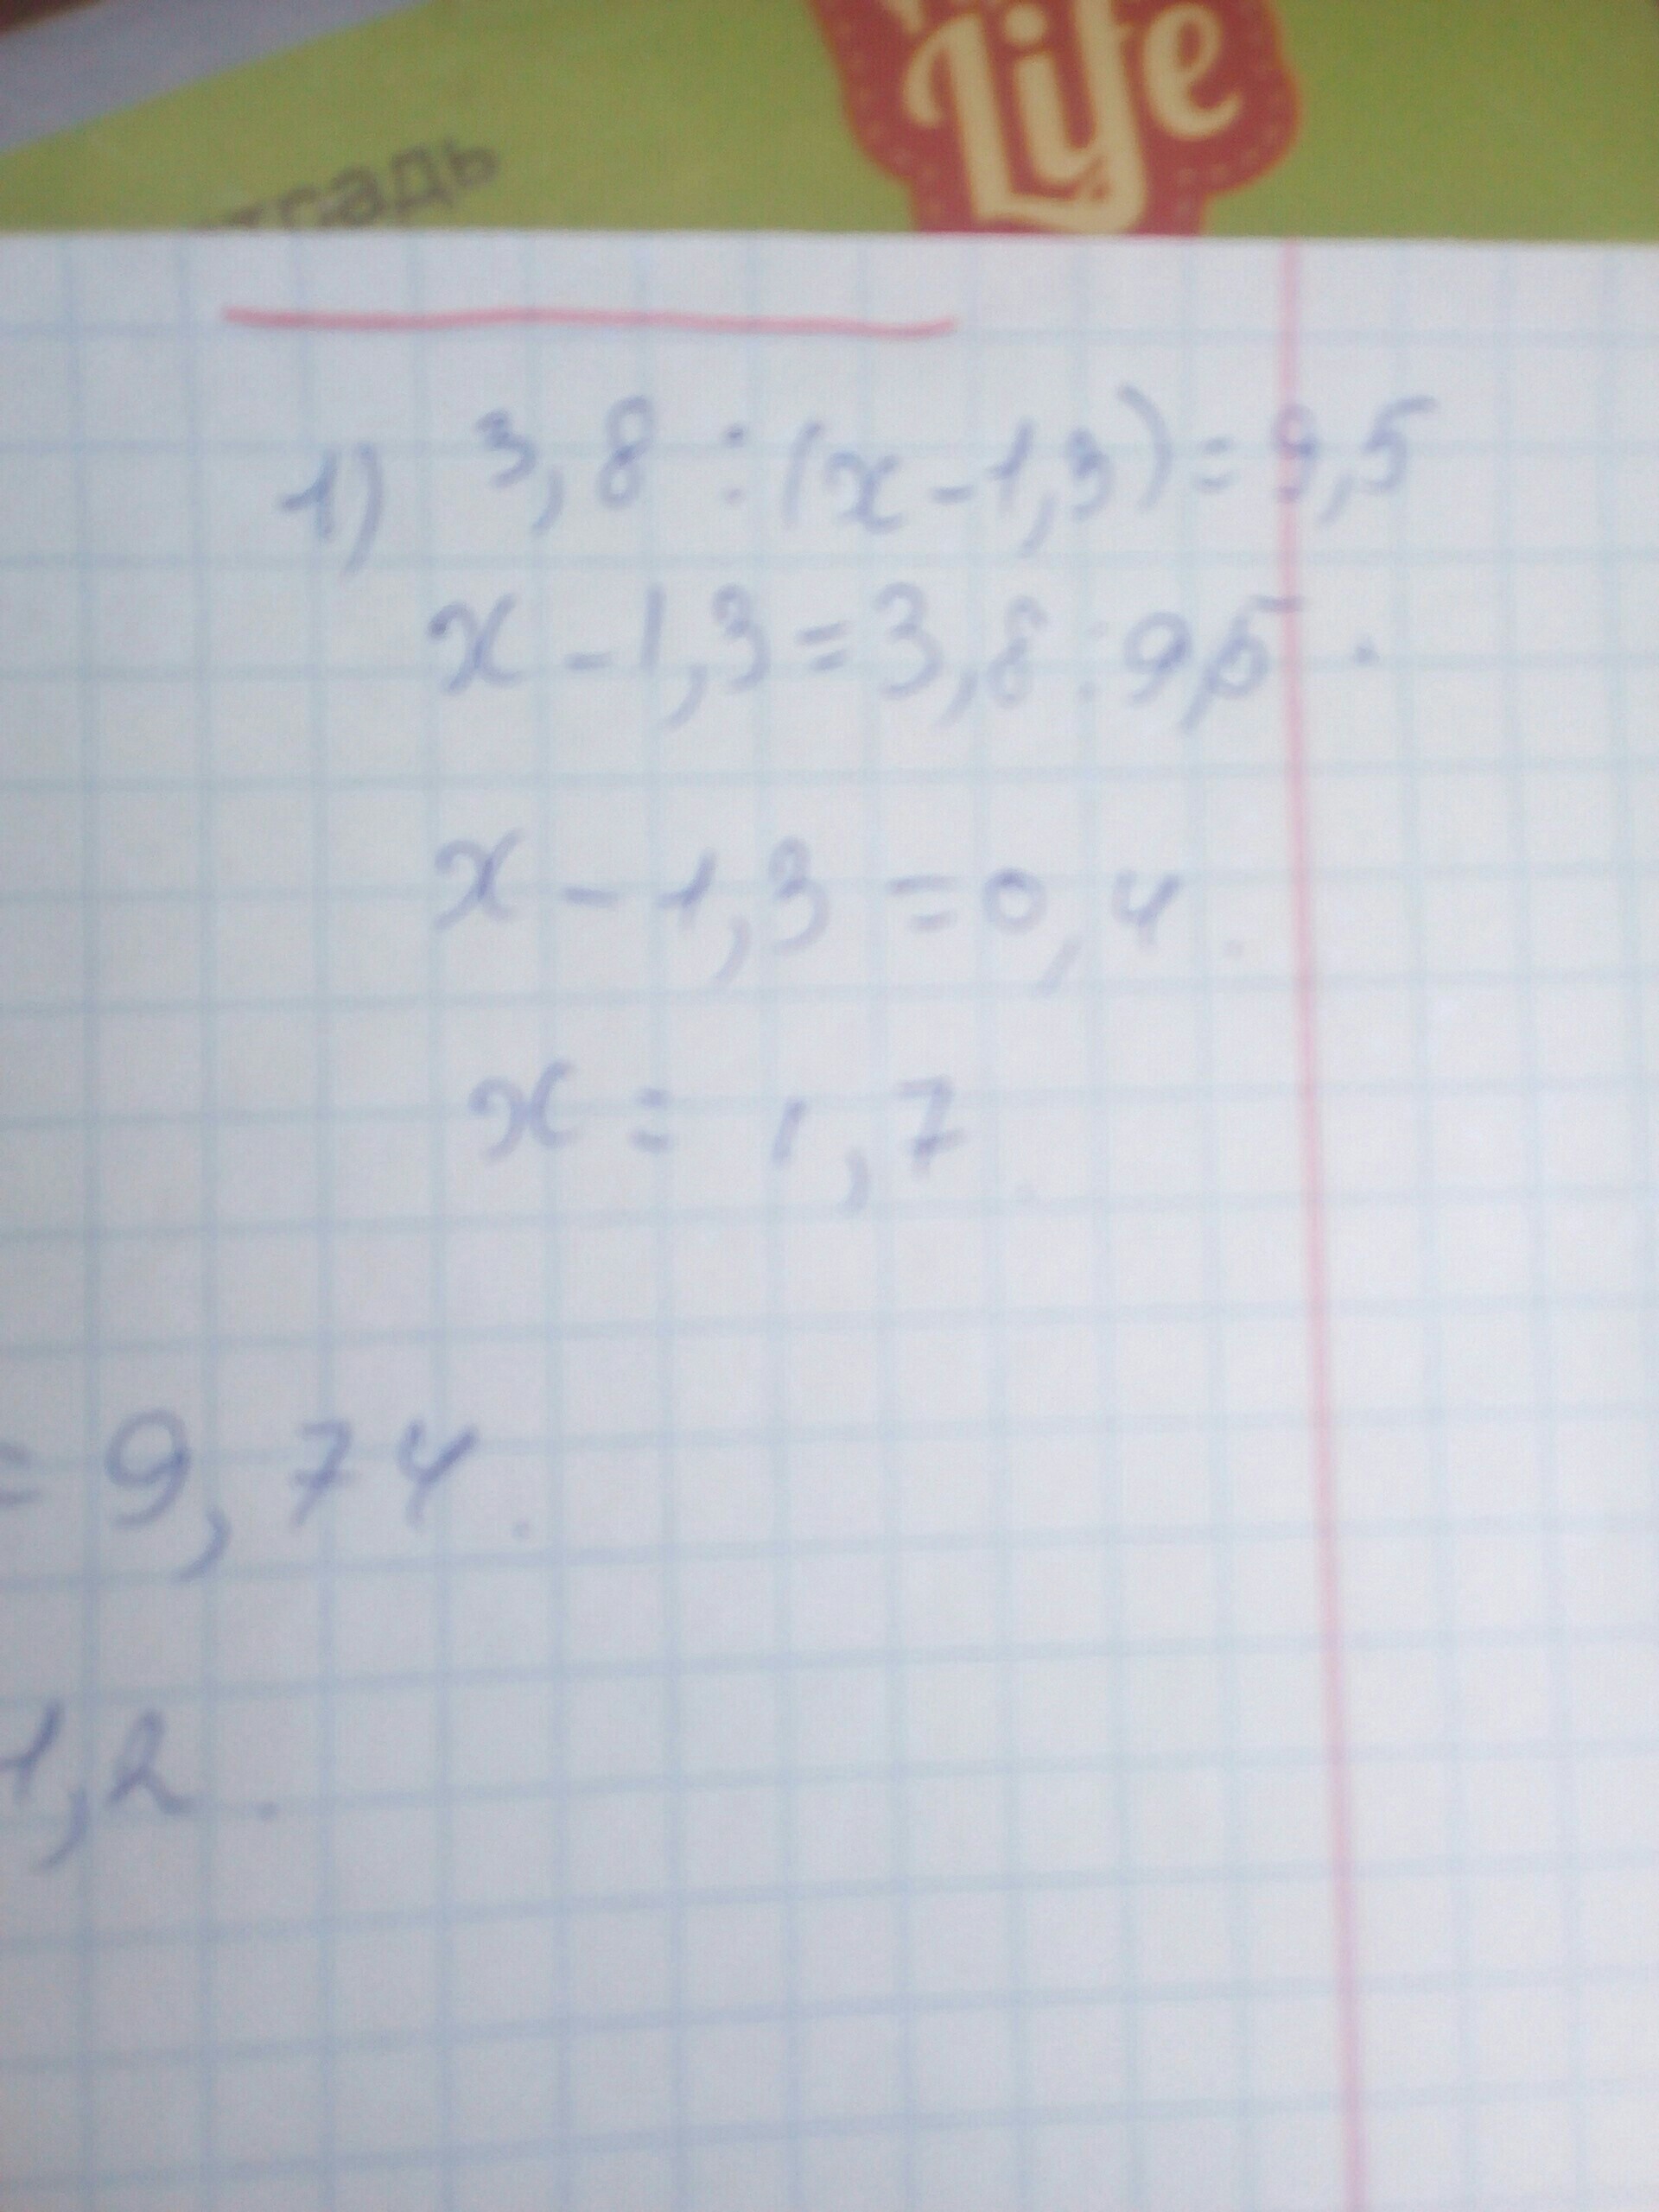 Life
тетрадь
1) 3,8 : (x - 1,3) = 9,5
x - 1,3 = 3,8 : 9,5 .
x - 1,3 = 0,4 .
x = 1,7
= 9,74 .
1,2 .